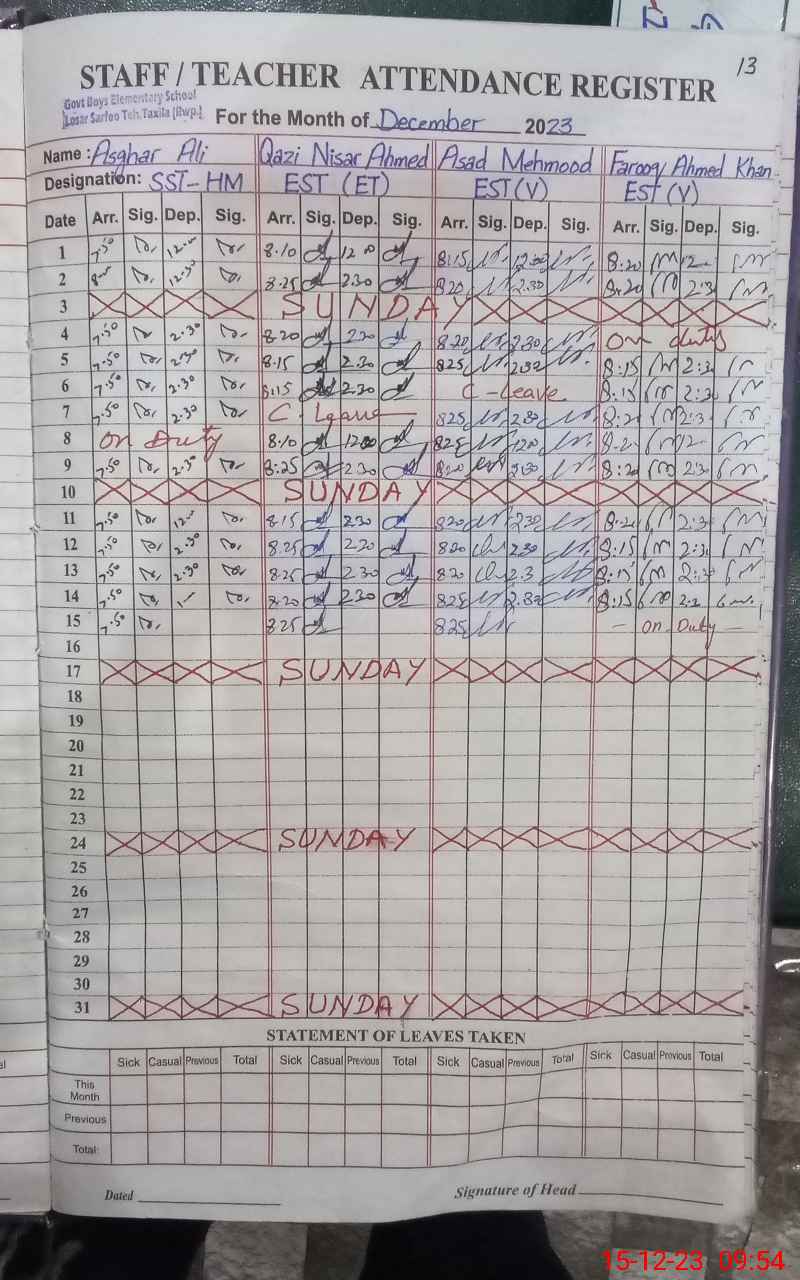 13
STAFF / TEACHER ATTENDANCE REGISTER
Govt Boys Elementary School
Losar Sarfoo Teh. Taxila (Rwp.)
For the Month of December 2023
Name: Asghar Ali Qazi Nisar Ahmed Asad Mehmood Farooq Ahmed Khan
Designation: SST-HM EST (ET) EST (V) EST (V)
Date Arr. Sig. Dep. Sig. Arr. Sig. Dep. Sig. Arr. Sig. Dep. Sig. Arr. Sig. Dep. Sig.
1 7.50 8.10 8.15 12.30 8.20
2 8.25 2.30 820 2.30 8.20 2:3
3 SUNDAY
4 7.50 2.30 8.20 820 2.30 On duty
5 7.50 8.15 2.30 825 8:15 2:3
6 7.50 2.30 8.15 2.30 C-Leave 8:15 2:3
7 7.50 2.30 C. Leave 825 8:2 2:3
8 On Duty 8.10 825 8:2 12
9 7.50 8.25 2.30 8:20 2:30
10 SUNDAY
11 7.50 8.15 2.30 820 2.30 8:2 2:3
12 7.50 2.30 8.25 820 2.30 8:15 2:3
13 7.50 2.30 8.25 2.30 820 2.3 8:15
14 7.50 8.20 2.30 825 8:15
15 7.50 8.25 825 - On Duty -
16
17 SUNDAY
18
19
20
21
22
23
24 SUNDAY
25
26
27
28
29
30
31 SUNDAY
STATEMENT OF LEAVES TAKEN
Sick Casual Previous Total Sick Casual Previous Total Sick Casual Previous Total Sick Casual Previous Total
This Month
Previous
Total:
Dated Signature of Head
15-12-23 09:54